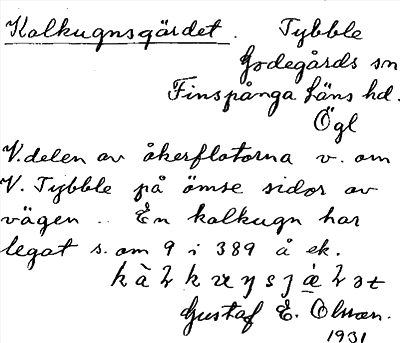 Kalkugnsgärdet. Tybble
Godegårds sn
Finspånga läns hd.
Ögl
V. delen av åkerflatorna v. om
V. Tybble på ömse sidor av
vägen .. En kalkugn har
legat s. om 9 i 389 å ek.
Gustaf E. Olsson.
1931